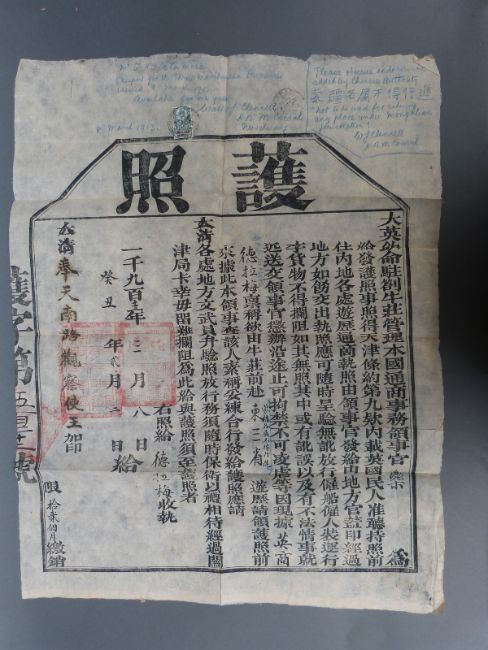 Please observe endorsement
added by Chinese Authority
蒙疆各属不得行進
not to be used for visiting
any place under Mongolian
jurisdiction
Available for one year
護照
大英欽命駐劄牛莊管理本國通商事務領事官 為
給發護照事照得天津條約第九款內載英國民人准聽持照前
往內地各處遊歷通商執照由領事官發給由地方官蓋印經過
地方如飭交出執照應可隨時呈驗無訛放行僱船僱人裝運行
李貨物不得攔阻如其無照其中或有訛誤以及有不法情事就
近送交領事官懲辦沿途止可拘禁不可凌虐等因現據英商
德拉梅稟稱欲由牛莊前赴東三省 遊歷請領護照前
來據此本領事查該人素稱妥練合行發給護照應請
大清各處地方文武員弁驗照放行務須隨時保衛以禮相待經過關
津局卡幸毋留難攔阻為此給與護照須至護照者
右照給 德拉梅收執
一千九百十三年 三月 八日
癸丑年 二月 一日 給
大清奉天南路觀察使王 加印
限 拾貳個月繳銷
護字第五百十一號